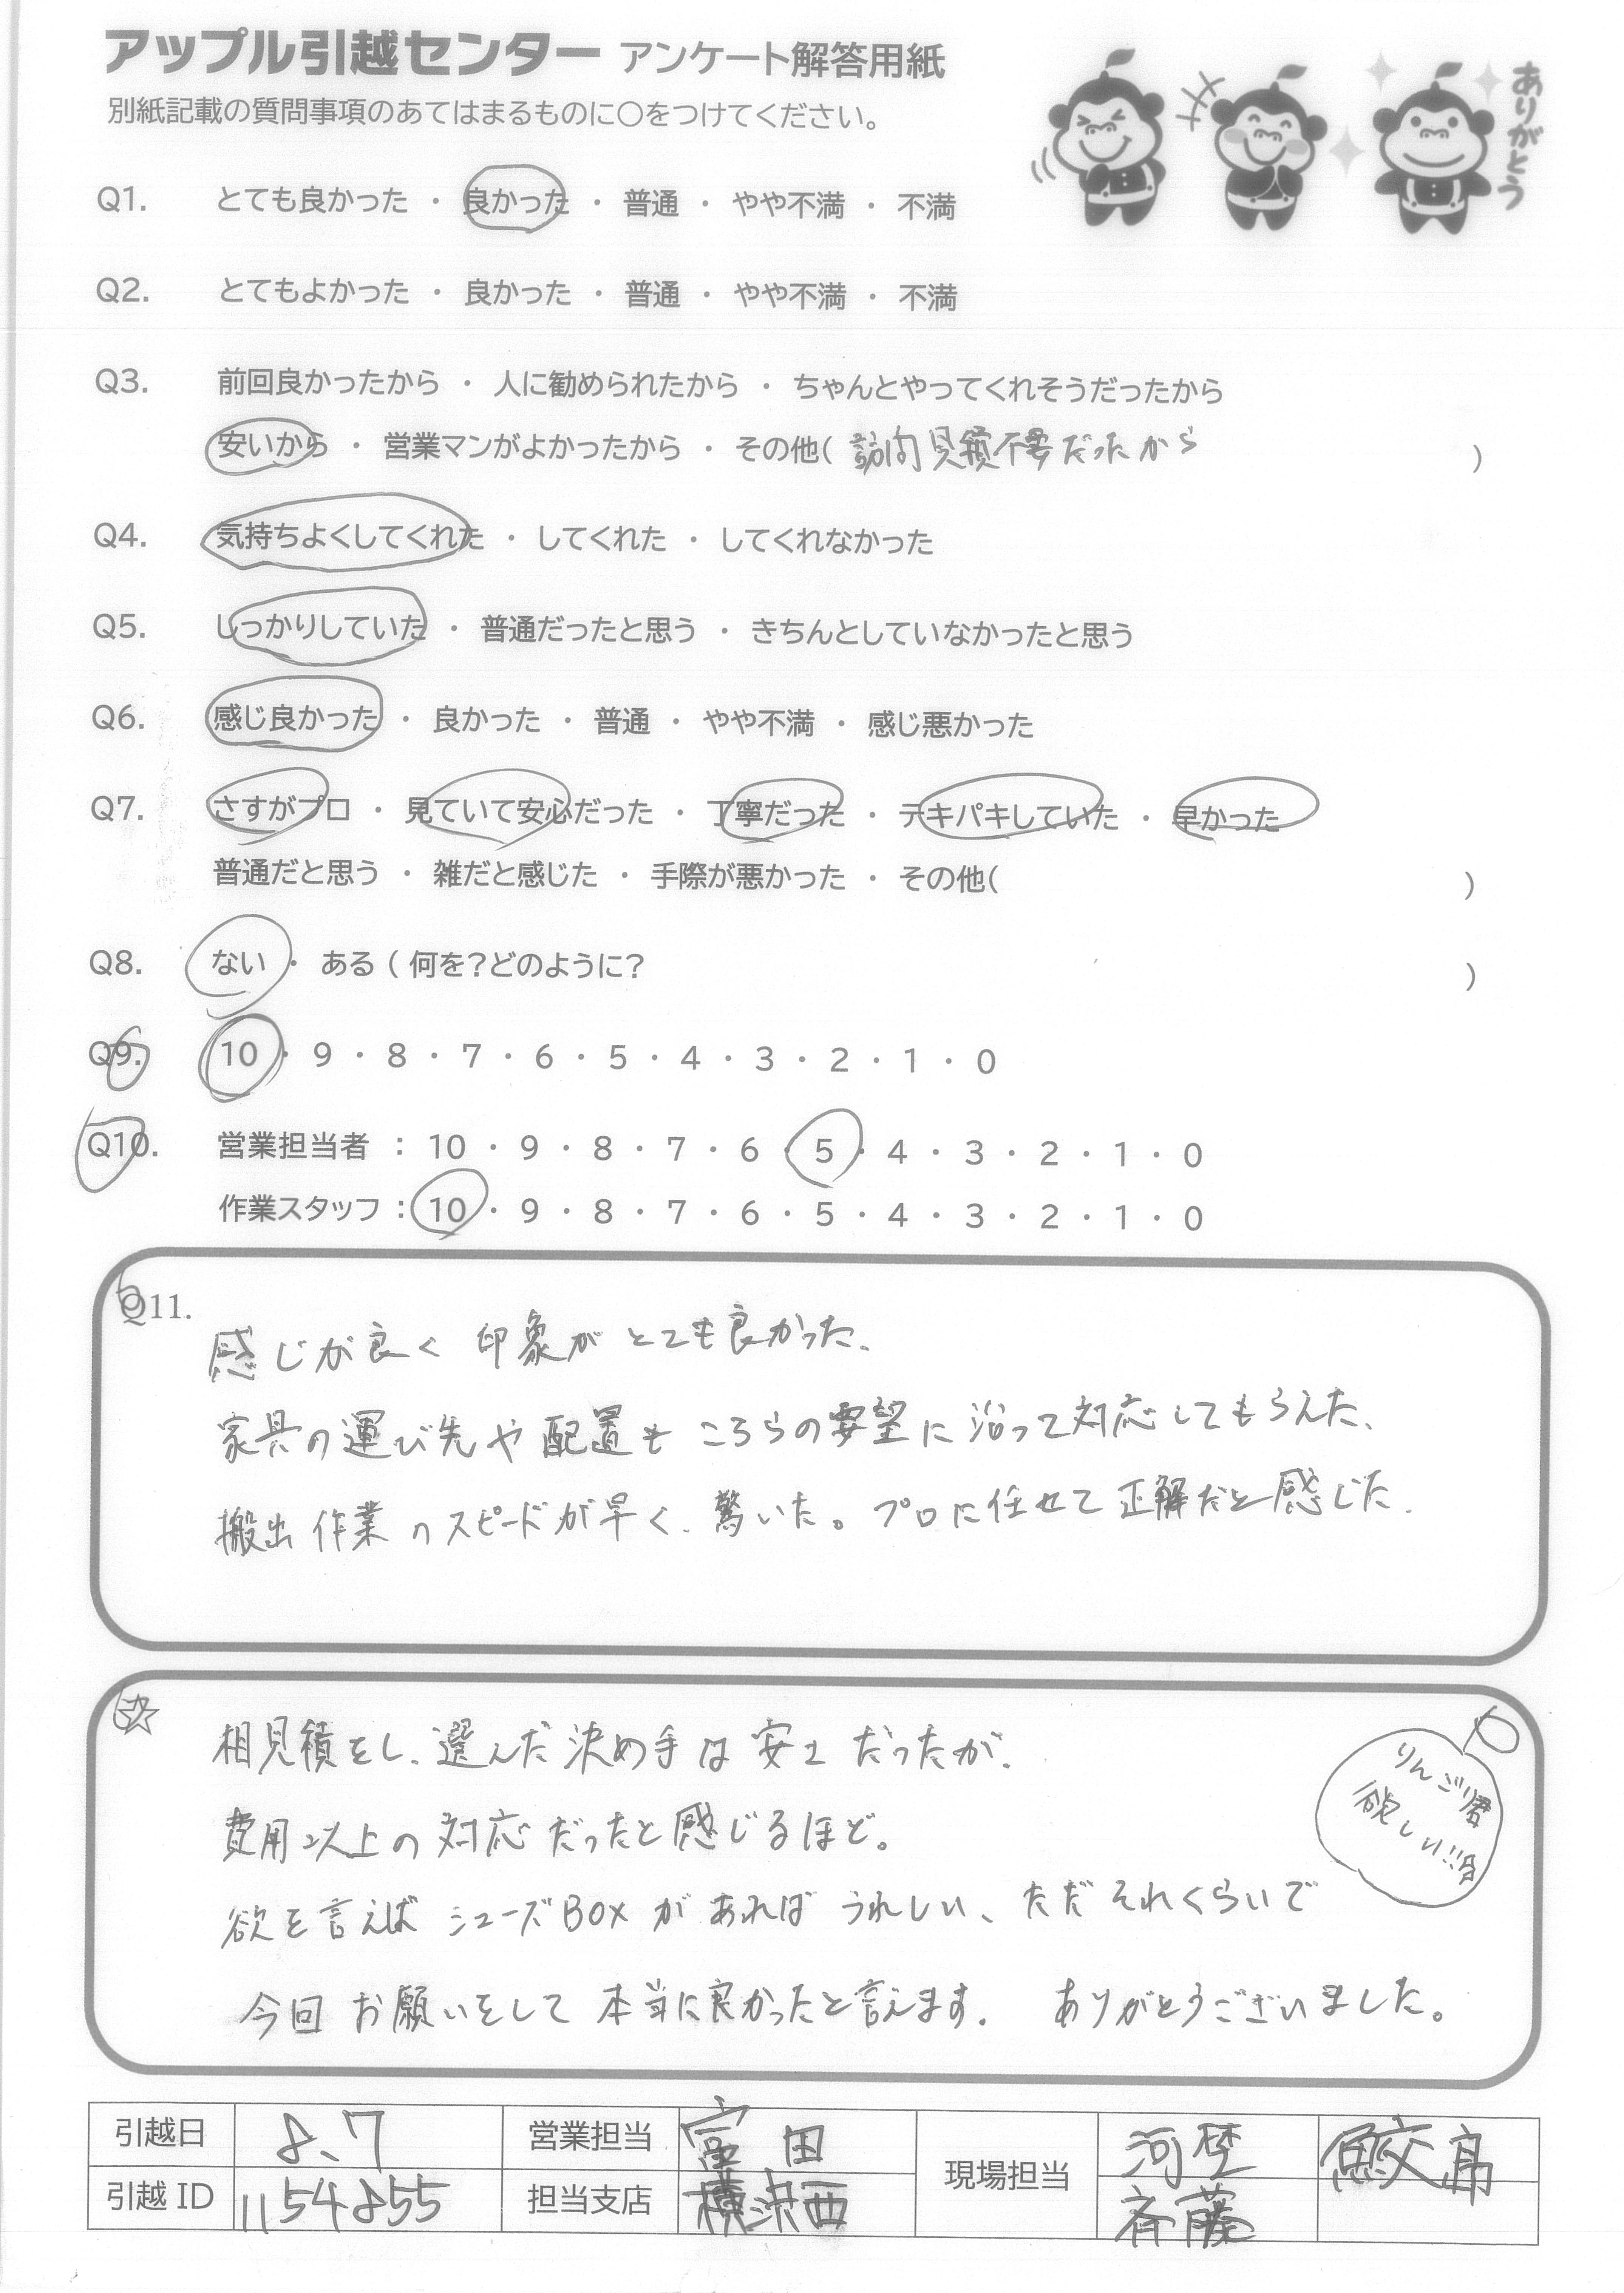 アップル引越センター アンケート解答用紙
別紙記載の質問事項のあてはまるものに○をつけてください。
ありがとう
Q1. とても良かった ・ 良かった ・ 普通 ・ やや不満 ・ 不満
Q2. とてもよかった ・ 良かった ・ 普通 ・ やや不満 ・ 不満
Q3. 前回良かったから ・ 人に勧められたから ・ ちゃんとやってくれそうだったから
安いから ・ 営業マンがよかったから ・ その他( 訪問見積不要だったから )
Q4. 気持ちよくしてくれた ・ してくれた ・ してくれなかった
Q5. しっかりしていた ・ 普通だったと思う ・ きちんとしていなかったと思う
Q6. 感じ良かった ・ 良かった ・ 普通 ・ やや不満 ・ 感じ悪かった
Q7. さすがプロ ・ 見ていて安心だった ・ 丁寧だった ・ テキパキしていた ・ 早かった
普通だと思う ・ 雑だと感じた ・ 手際が悪かった ・ その他( )
Q8. ない ・ ある ( 何を?どのように? )
Q9. 10 ・ 9 ・ 8 ・ 7 ・ 6 ・ 5 ・ 4 ・ 3 ・ 2 ・ 1 ・ 0
Q10. 営業担当者 : 10 ・ 9 ・ 8 ・ 7 ・ 6 ・ 5 ・ 4 ・ 3 ・ 2 ・ 1 ・ 0
作業スタッフ : 10 ・ 9 ・ 8 ・ 7 ・ 6 ・ 5 ・ 4 ・ 3 ・ 2 ・ 1 ・ 0
Q11.
感じが良く 印象がとても良かった、
家具の運び先や配置も こちらの要望に沿って対応してもらえた、
搬出作業のスピードが早く、驚いた。プロに任せて正解だと感じた.
☆
相見積をし、選んだ決め手は安さだったが、
費用以上の対応だったと感じるほど。
欲を言えば シューズBOXがあればうれしい、ただそれくらいで
今回お願いをして本当に良かったと言えます. ありがとうございました。
りんご君
欲しい!!
引越日 8、7 営業担当 富田 現場担当 河埜 鮫島
引越ID 1154855 担当支店 横浜西 斉藤